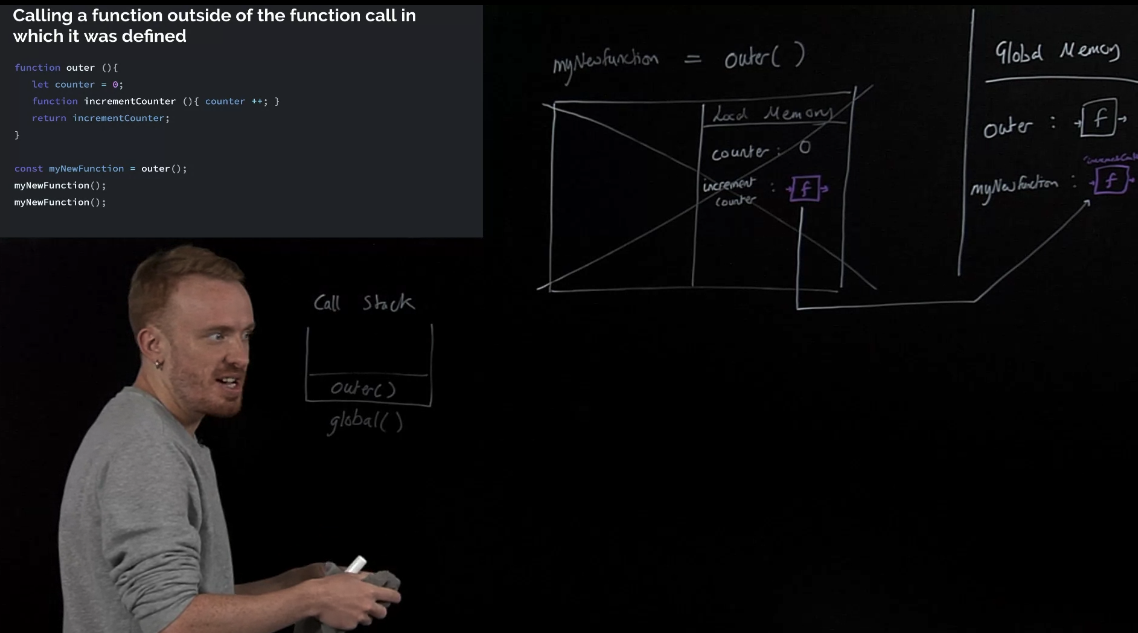 Calling a function outside of the function call in
which it was defined
function outer (){
let counter = 0;
function incrementCounter (){ counter ++; }
return incrementCounter;
}
const myNewFunction = outer();
myNewFunction();
myNewFunction();
myNewFunction = outer( )
Local Memory
counter : 0
increment : f
counter
Global Memory
outer : f
myNewFunction : f
Call Stack
outer()
global()